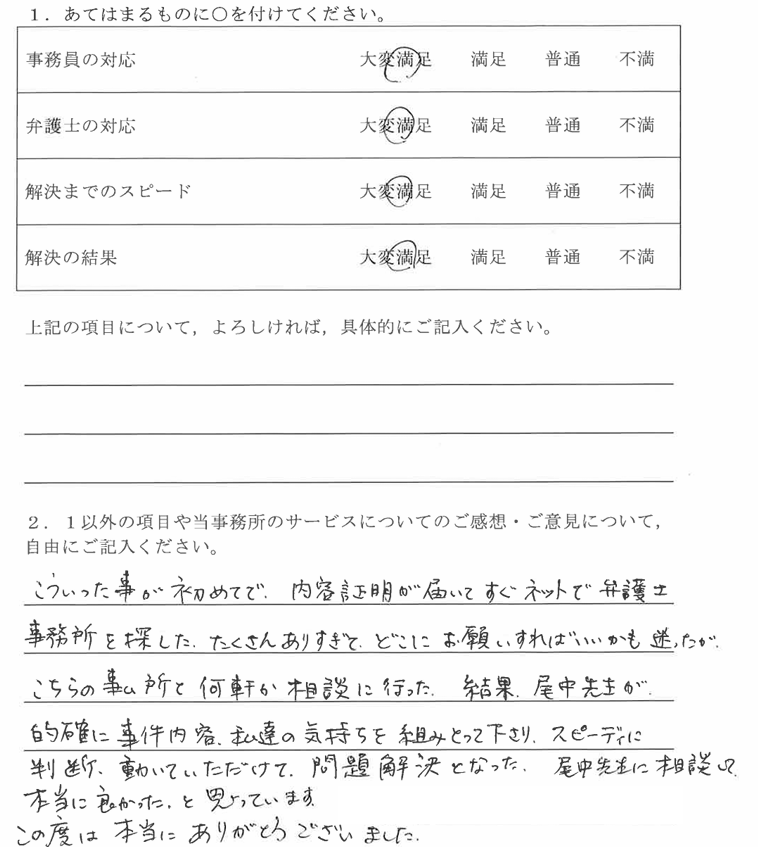 １．あてはまるものに○を付けてください。
事務員の対応 大変満足 満足 普通 不満
弁護士の対応 大変満足 満足 普通 不満
解決までのスピード 大変満足 満足 普通 不満
解決の結果 大変満足 満足 普通 不満
上記の項目について，よろしければ，具体的にご記入ください。
２．１以外の項目や当事務所のサービスについてのご感想・ご意見について，
自由にご記入ください。
こういった事が初めてで、内容証明が届いてすぐネットで弁護士
事務所を探した。たくさんありすぎて、どこにお願いすればいいかも迷ったが、
こちらの事ム所と何軒か相談に行った。結果、尾中先生が、
的確に事件内容、私達の気持ちを組みとって下さり、スピーディに
判断、動いていただけて、問題解決となった。尾中先生に相談して
本当に良かった。と思っています。
この度は本当にありがとうございました。